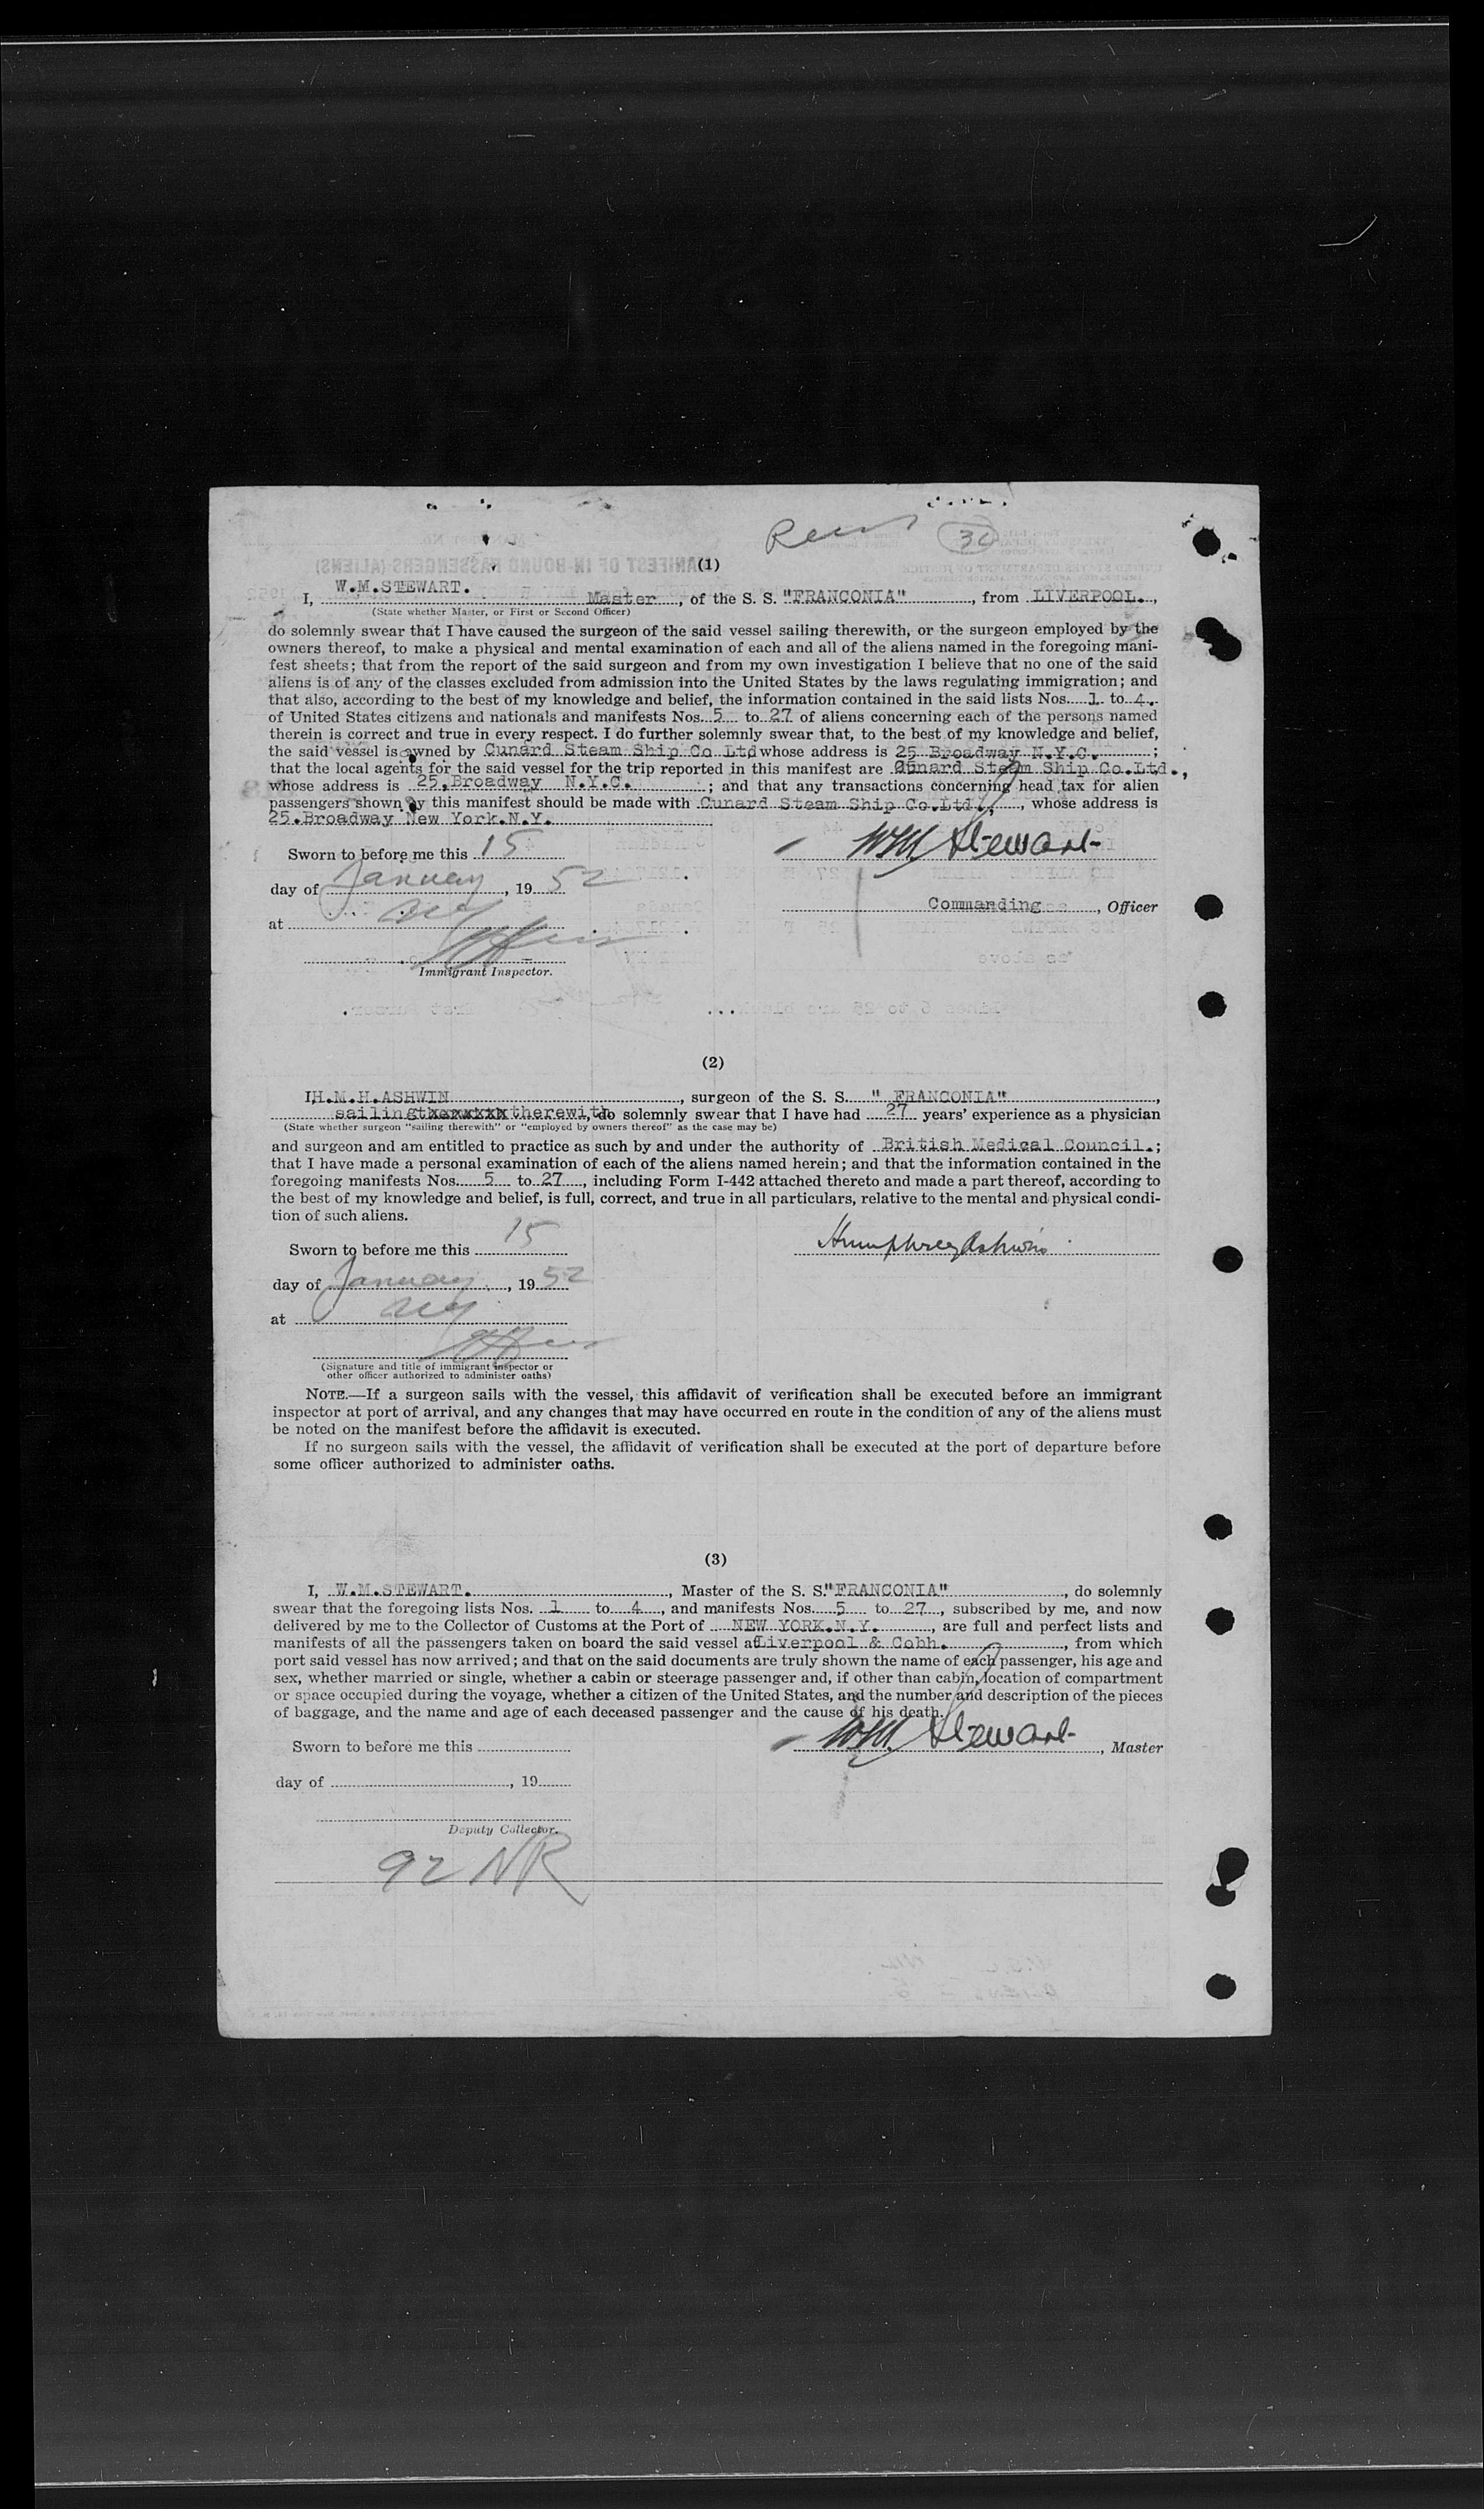 30
(1)
W.M.STEWART.
I, Master, of the S. S. "FRANCONIA", from LIVERPOOL.,
(State whether Master, or First or Second Officer)
do solemnly swear that I have caused the surgeon of the said vessel sailing therewith, or the surgeon employed by the
owners thereof, to make a physical and mental examination of each and all of the aliens named in the foregoing mani-
fest sheets; that from the report of the said surgeon and from my own investigation I believe that no one of the said
aliens is of any of the classes excluded from admission into the United States by the laws regulating immigration; and
that also, according to the best of my knowledge and belief, the information contained in the said lists Nos. 1. to 4.
of United States citizens and nationals and manifests Nos. 5 to 27 of aliens concerning each of the persons named
therein is correct and true in every respect. I do further solemnly swear that, to the best of my knowledge and belief,
the said vessel is owned by Cunard Steam Ship Co Ltd whose address is 25 Broadway N.Y.C. ;
that the local agents for the said vessel for the trip reported in this manifest are Cunard Steam Ship Co.Ltd.,
whose address is 25.Broadway N.Y.C. ; and that any transactions concerning head tax for alien
passengers shown by this manifest should be made with Cunard Steam Ship Co.Ltd., whose address is
25.Broadway New York.N.Y.
Sworn to before me this 15 WM Stewart
day of January, 1952
Commanding, Officer
at NY
Immigrant Inspector.
(2)
I, H.M.H.ASHWIN, surgeon of the S. S. " FRANCONIA",
sailing therewith, do solemnly swear that I have had 27 years' experience as a physician
(State whether surgeon "sailing therewith" or "employed by owners thereof" as the case may be)
and surgeon and am entitled to practice as such by and under the authority of British Medical Council.;
that I have made a personal examination of each of the aliens named herein; and that the information contained in the
foregoing manifests Nos. 5 to 27, including Form I-442 attached thereto and made a part thereof, according to
the best of my knowledge and belief, is full, correct, and true in all particulars, relative to the mental and physical condi-
tion of such aliens.
Sworn to before me this 15 Humphrey Ashwin
day of January, 1952
at NY
(Signature and title of immigrant inspector or
other officer authorized to administer oaths)
NOTE.—If a surgeon sails with the vessel, this affidavit of verification shall be executed before an immigrant
inspector at port of arrival, and any changes that may have occurred en route in the condition of any of the aliens must
be noted on the manifest before the affidavit is executed.
If no surgeon sails with the vessel, the affidavit of verification shall be executed at the port of departure before
some officer authorized to administer oaths.
(3)
I, W.M.STEWART., Master of the S. S. "FRANCONIA", do solemnly
swear that the foregoing lists Nos. 1 to 4, and manifests Nos. 5 to 27, subscribed by me, and now
delivered by me to the Collector of Customs at the Port of NEW YORK.N.Y., are full and perfect lists and
manifests of all the passengers taken on board the said vessel at Liverpool & Cobh., from which
port said vessel has now arrived; and that on the said documents are truly shown the name of each passenger, his age and
sex, whether married or single, whether a cabin or steerage passenger and, if other than cabin, location of compartment
or space occupied during the voyage, whether a citizen of the United States, and the number and description of the pieces
of baggage, and the name and age of each deceased passenger and the cause of his death.
Sworn to before me this WM Stewart, Master
day of , 19
Deputy Collector.
92 NR